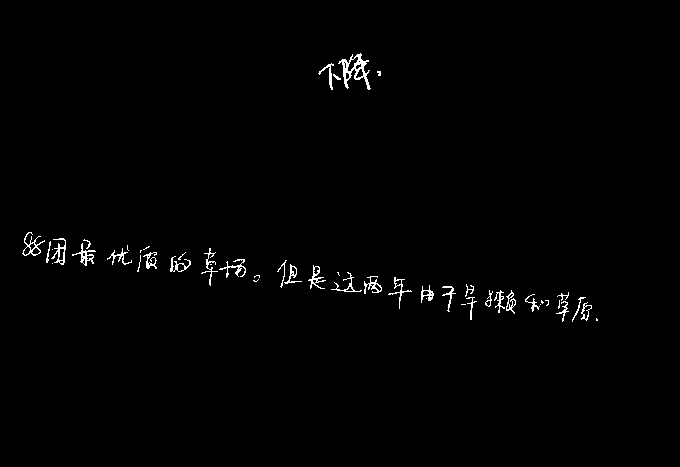 下降。
88团最优质的草场。但是这两年由于旱獭和草原